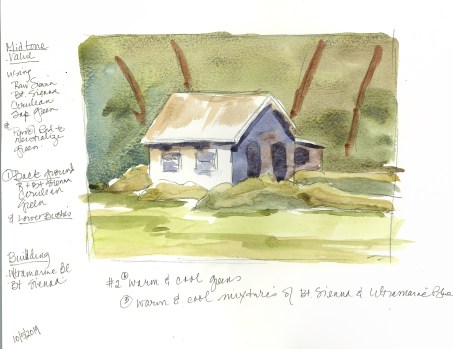 Midtone
Value
using
Raw Sienna
Bt. Sienna
Cerulean
Sap Green
Red to
neutralize
green
① Back Ground
Bt Sienna
Cerulean
Green
& Lower Bushes
Building
Ultramarine Bl
Bt Sienna
#2 warm & cool greens
③ warm & cool mixtures of Bt. Sienna & Ultramarine Blue
10/5/2019